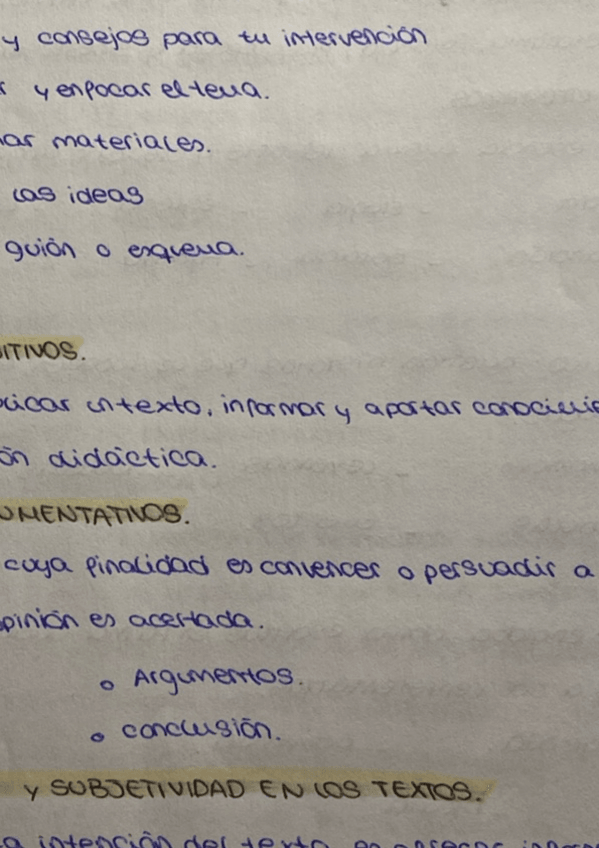 y consejos para tu intervención
y enfocar el tema.
materiales.
las ideas
guión o esquema.
ITIVOS.
un texto, informar y aportar
ón didáctica.
UMENTATIVOS.
cuya finalidad es convencer o persuadir a
pinión es acertada.
o Argumentos.
o conclusión.
y SUBJETIVIDAD EN LOS TEXTOS.
a intención del texto